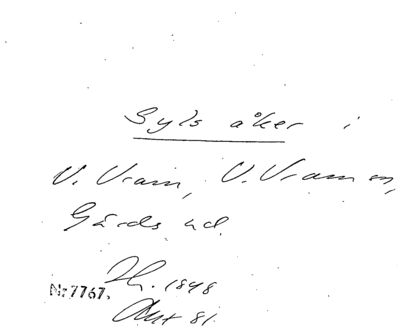 Byls åker i
V. Vram, V. Vram sn,
Gärds hd.
Nr 7767. 1848
Akt 81.